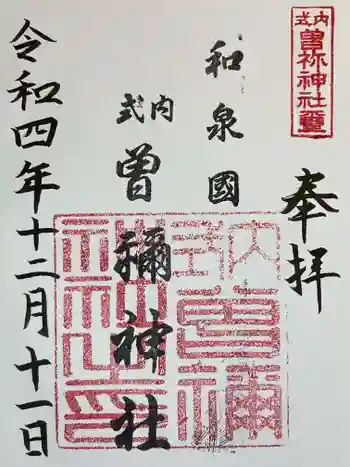 式内
曽祢神社璽
奉拝
和泉國
式内
曽禰神社
式内曽禰
神社之印
令和四年十二月十一日